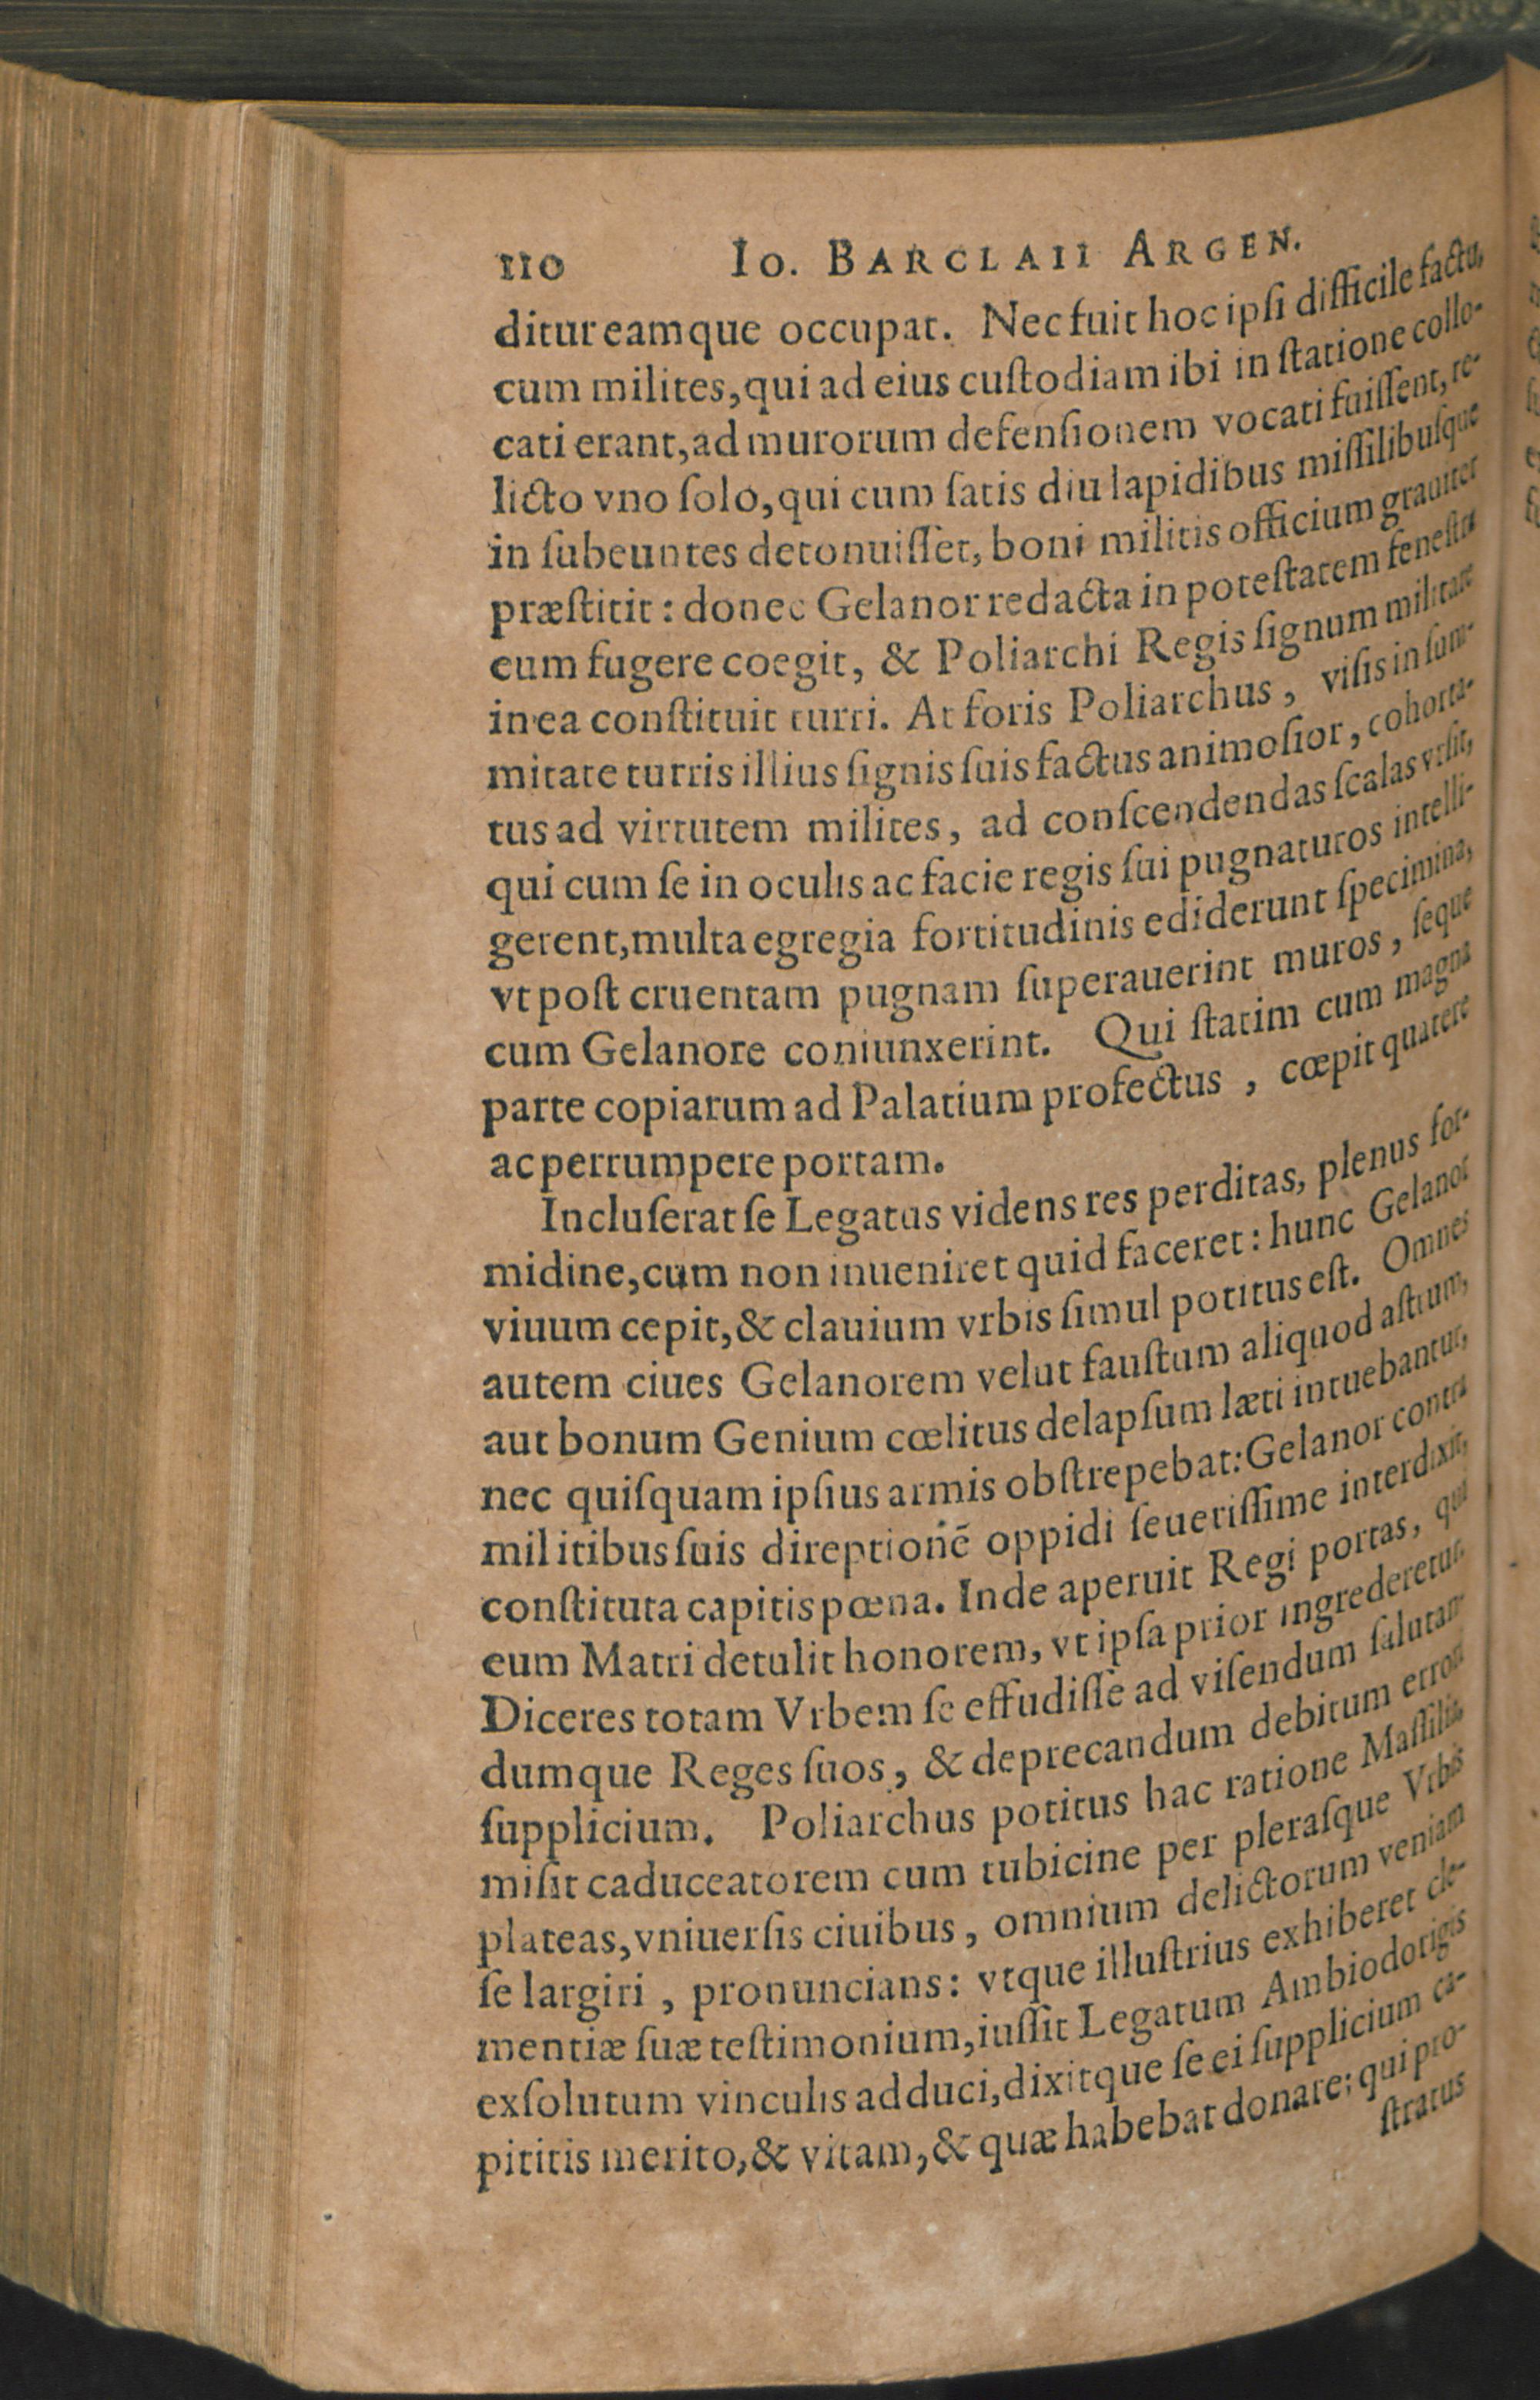 110 Io. BARCLAII ARGEN.
ditur eamque occupat. Nec fuit hoc ipsi difficile factu,
cum milites, qui ad eius custodiam ibi in statione collo-
cati erant, ad murorum defensionem vocati fuissent, re-
licto vno solo, qui cum satis diu lapidibus missilibusque
in subeuntes detonuisset, boni militis officium grauiter
præstitit: donec Gelanor redacta in potestatem fenestra
eum fugere coegit, & Poliarchi Regis signum militare
in ea constituit turri. At foris Poliarchus, visis in sum-
mitate turris illius signis suis factus animosior, cohorta-
tus ad virtutem milites, ad conscendendas scalas vrsit,
qui cum se in oculis ac facie regis sui pugnaturos intelli-
gerent, multa egregia fortitudinis ediderunt specimina,
vt post cruentam pugnam superauerint muros, seque
cum Gelanore coniunxerint. Qui statim cum magna
parte copiarum ad Palatium profectus, cœpit quatere
ac perrumpere portam.
Incluserat se Legatus videns res perditas, plenus for-
midine, cum non inueniret quid faceret: hunc Gelanor
viuum cepit, & clauium vrbis simul potitus est. Omnes
autem ciues Gelanorem velut faustum aliquod astrum,
aut bonum Genium cœlitus delapsum læti intuebantur,
nec quisquam ipsius armis obstrepebat: Gelanor contra
militibus suis direptionē oppidi seuerissime interdixit,
constituta capitis pœna. Inde aperuit Regi portas, qui
eum Matri detulit honorem, vt ipsa prior ingrederetur.
Diceres totam Vrbem se effudisse ad visendum salutan-
dumque Reges suos, & deprecandum debitum errori
supplicium. Poliarchus potitus hac ratione Massilia,
misit caduceatorem cum tubicine per plerasque Vrbis
plateas, vniuersis ciuibus, omnium delictorum veniam
se largiri, pronuncians: vtque illustrius exhiberet cle-
mentiæ suæ testimonium, iussit Legatum Ambiodorigis
exsolutum vinculis adduci, dixitque se ei supplicium ca-
pititis merito, & vitam, & quæ habebat donare: qui pro-
stratus